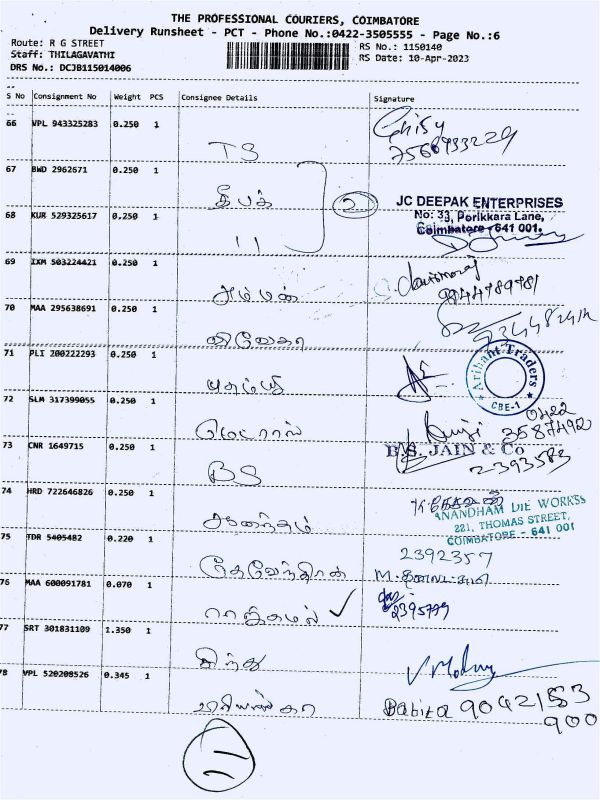 THE PROFESSIONAL COURIERS, COIMBATORE
Delivery Runsheet - PCT - Phone No.:0422-3505555 - Page No.:6
Route: R G STREET
Staff: THILAGAVATHI
DRS No.: DCJB115014006
RS No.: 1150140
RS Date: 10-Apr-2023
S No Consignment No Weight PCS Consignee Details Signature
66 VPL 943325283 0.250 1
TS
67 BWD 2962671 0.250 1
தீபக்
2
JC DEEPAK ENTERPRISES
No: 33, Porikkara Lane,
Coimbatore - 641 001.
68 KUR 529325617 0.250 1
11
69 IXM 503224421 0.250 1
அம்மன்
9244789781
70 MAA 295638691 0.250 1
விவேகா
71 PLI 200222293 0.250 1
Arihant Traders
CBE-1
72 SLM 317399055 0.250 1
மெட்ரால்
0422
3587492
73 CNR 1649715 0.250 1
BS
B.S. JAIN & Co
2393583
74 HRD 722646826 0.250 1
ஆனந்தம்
ANANDHAM DIE WORKSS
221, THOMAS STREET,
COIMBATORE - 641 001
75 TDR 5405482 0.220 1
2392357
76 MAA 600091781 0.070 1
ராஜ்கமல்
2395779
77 SRT 301831109 1.350 1
இந்து
78 VPL 520208526 0.345 1
பிரியங்கா
Babiza 9042153
900